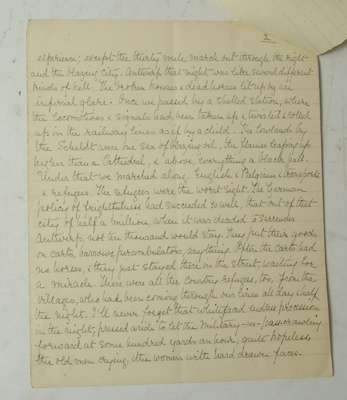 2
experience, except the thirty mile march out through the night
and the blazing city. Antwerp that night was like several different
kinds of hell. The broken houses & dead horses lit up by an
infernal glare. Once we passed by a shelled station, where
the locomotives & signals had been taken up & twisted & rolled
up on the railway lines as if by a child. The lowlands by
the Scheldt were one sea of blazing oil, the flames leaping up
higher than a Cathedral, & above everything a black pall.
Under that we marched along. English & Belgians & transports
& refugees. The refugees were the worst sight. The German
policy of frightfulness had succeeded so well, that out of that
city of half a million, when it was decided to surrender
Antwerp, not ten thousand would stay. They put their goods
on carts, barrows, perambulators, anything. Often the carts had
no horses, & they just stayed there in the street, waiting for
a miracle. There were all the country refugees, too, from the
villages, who had been coming through our lines all day & half
the night. I'll never forget that white-faced endless procession
in the night, pressed aside to let the military – us – pass, crawling
forward at some hundred yards an hour, quite hopeless,
the old men crying, & the women with hard drawn faces.